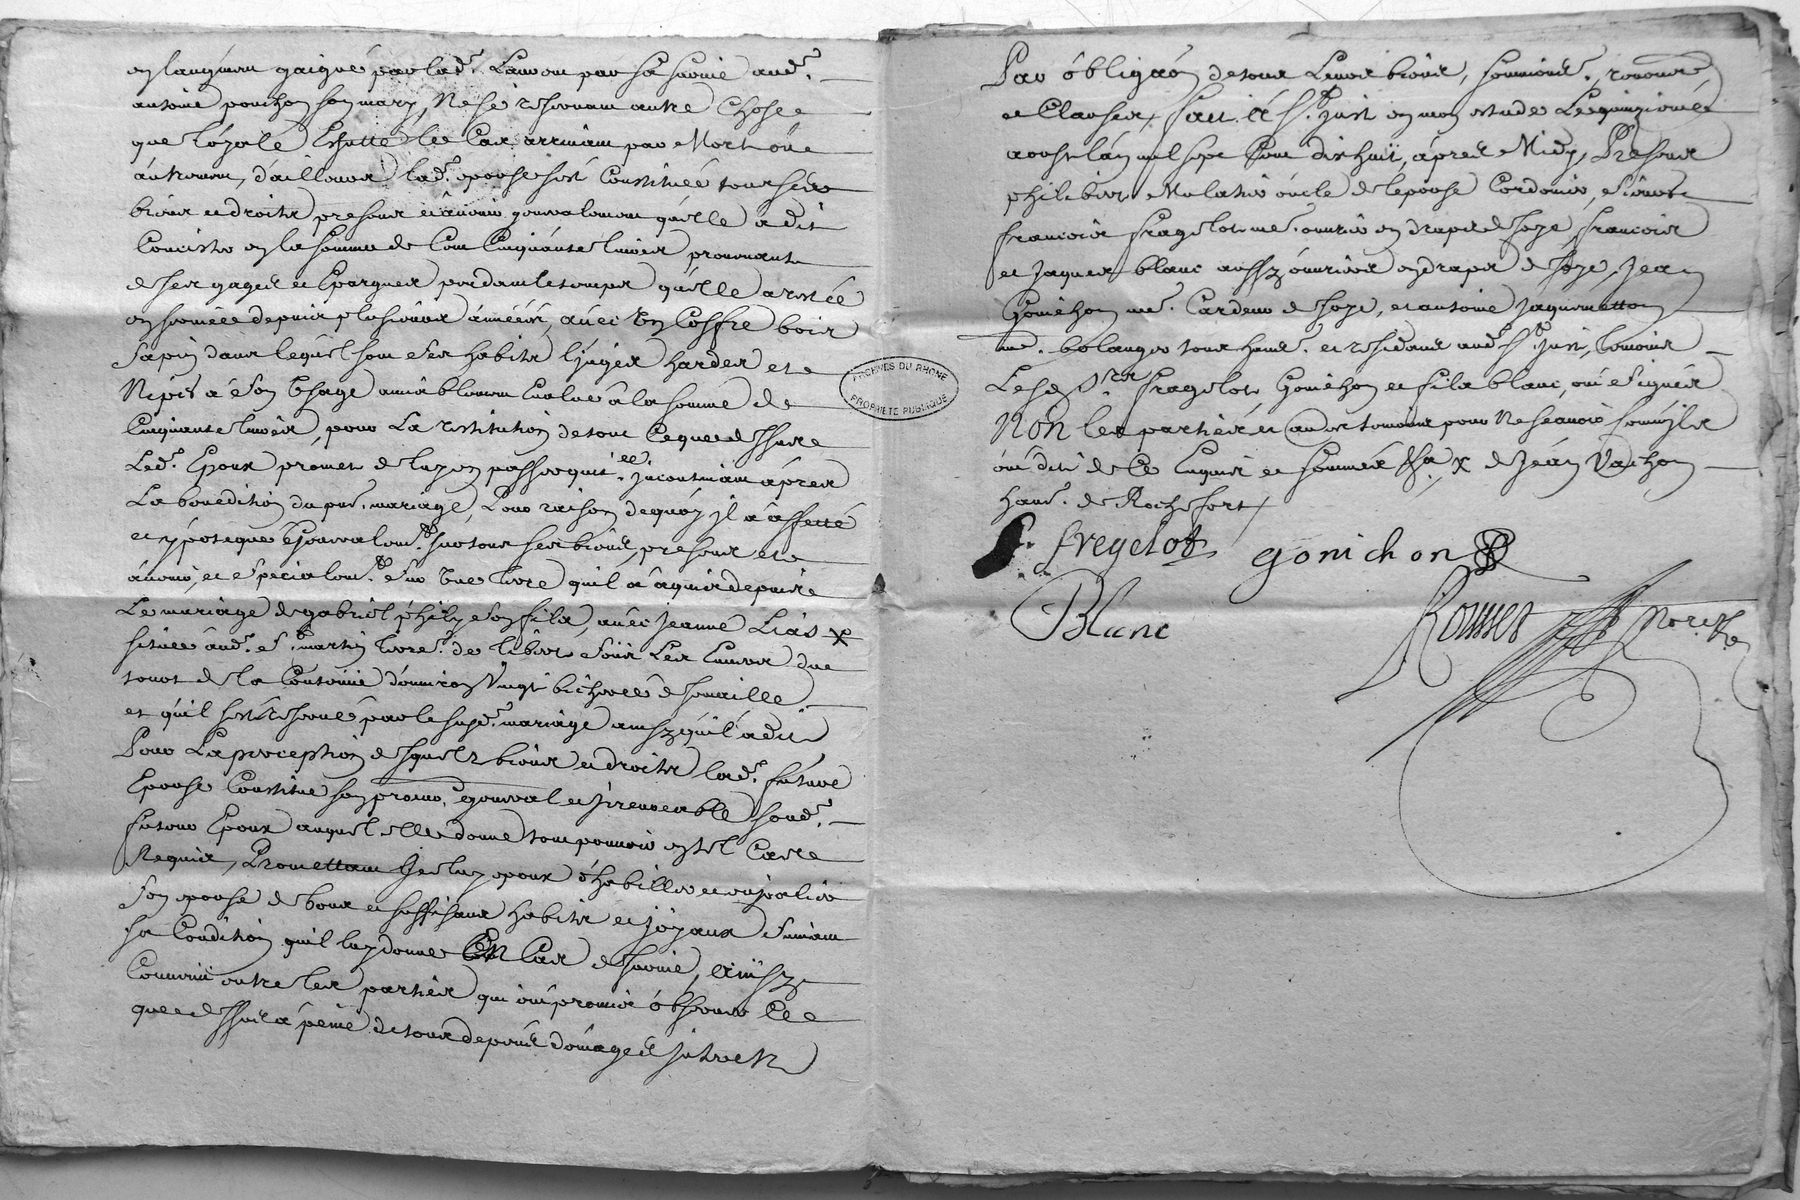 antoine pouchon son mary, Ne se reservant autre Chose
que loyale
d'ailleurs lad.e epouse s'est Constituée tous ses
biens et droits presens et avenir generalement qu'elle a dit
Consister en la somme de Cent Cinquante livres provenante
de ses gages et Epargnes pendant le temps qu'elle a restée
en service depuis plusieurs années, avec un Coffre bois
sapin dans lequel sont ses habits linges hardes et
Nipes a son usage amiablement Evalué a la somme de
Cinquante livres, pour La restitution de tout Ce que dessus
Led.t Epoux promet de luy en passer quit.ce incontinant apres
La benediction du pnt. mariage, Pour raison de quoy il a affecté
et ypoteque generalem.t sur tous ses biens presens et
avenir, et specialem.t sur une terre qu'il a aquis depuis
Le mariage de gabriel philip son fils, avec jeanne Lias x
située aud.t St martin
de la Contenue d'environ vingt bicherées de semaille
et qu'il s'est reservée par le susd.t mariage ainsy qu'il a dit
Pour La perception desquels biens et droits lad.e future
Epouse Constitue son procur. general et irrevocable sond.t
futeur Epoux auquel elle donne tout pouvoir en tel Cas
Requis, Promettant Iceluy epoux d'habiller et enjoalier
son epouse de bons et suffisans habits et joyaux suivant
sa Condition qu'il luy donne EN Cas de survie, ainsy
Convenu entre les parties qui ont promis observer Ce
que dessus a peine de tous depens domages interets
Par obligaon de tous Leurs biens, soumions, renonons
et Clauses, fait a St. Just en mon estude Le quinzieme
aoust l'an mil sept Cent dix huit, apres Midy, Presens
philibert Mulatier oncle de l'epouse Cordonier,
francois fregelot me. ouvrier en draps de soye, francois
et jaques blanc aussy ouvriers en draps de soye, Jean
Gonichon me. Cardeur de soye, et antoine jaquemetton
me. bolanger tous habts. et residans aud. St Just, temoins
Lesd. Srs fregelot, Gonichon et fils blanc, ont signés
Non les parties et autres temoins pour Ne scavoir Comme ils
ont dit de Ce Enquis et sommés x de Jean Vachon
habt. de Rochefort
f. fregelot gonichon
Blanc Rousset No.re